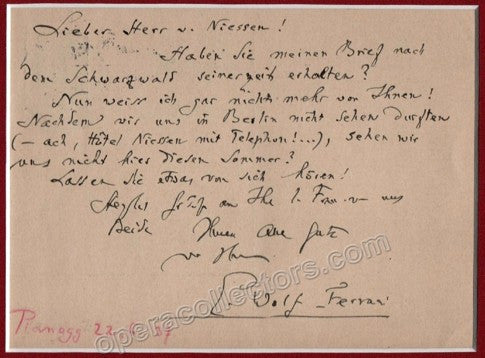 Lieber Herr v. Niessen!
Haben Sie meinen Brief nach
dem Schwarzwald seinerzeit erhalten?
Nun weiss ich gar nichts mehr von Ihnen!
Nachdem wir uns in Berlin nicht sehen durften
(— ach, Hôtel Niessen mit Telephon!...), sehen wir
uns nicht hier diesen Sommer?
Lassen Sie etwas von sich hören!
Grüsse an Ihre l. Frau uns
beide Ihnen alles Gute
von Ihrem
Wolf-Ferrari
Planegg 22
operacollectors.com